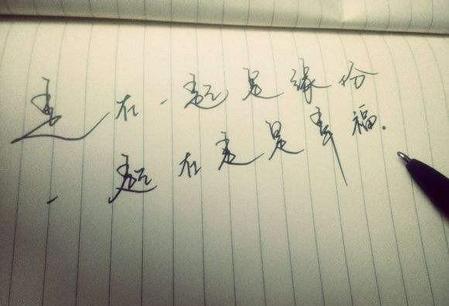 走在一起是缘份
一起在走是幸福.